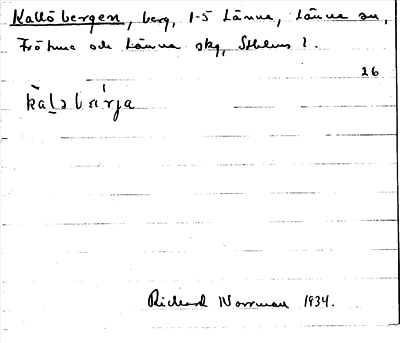 Kallöbergen, berg, 1-5 Länna, Länna sn,
Frötuna och Länna skg, Sthlms l.
26
kaləbärja
Richard Norrman 1934.